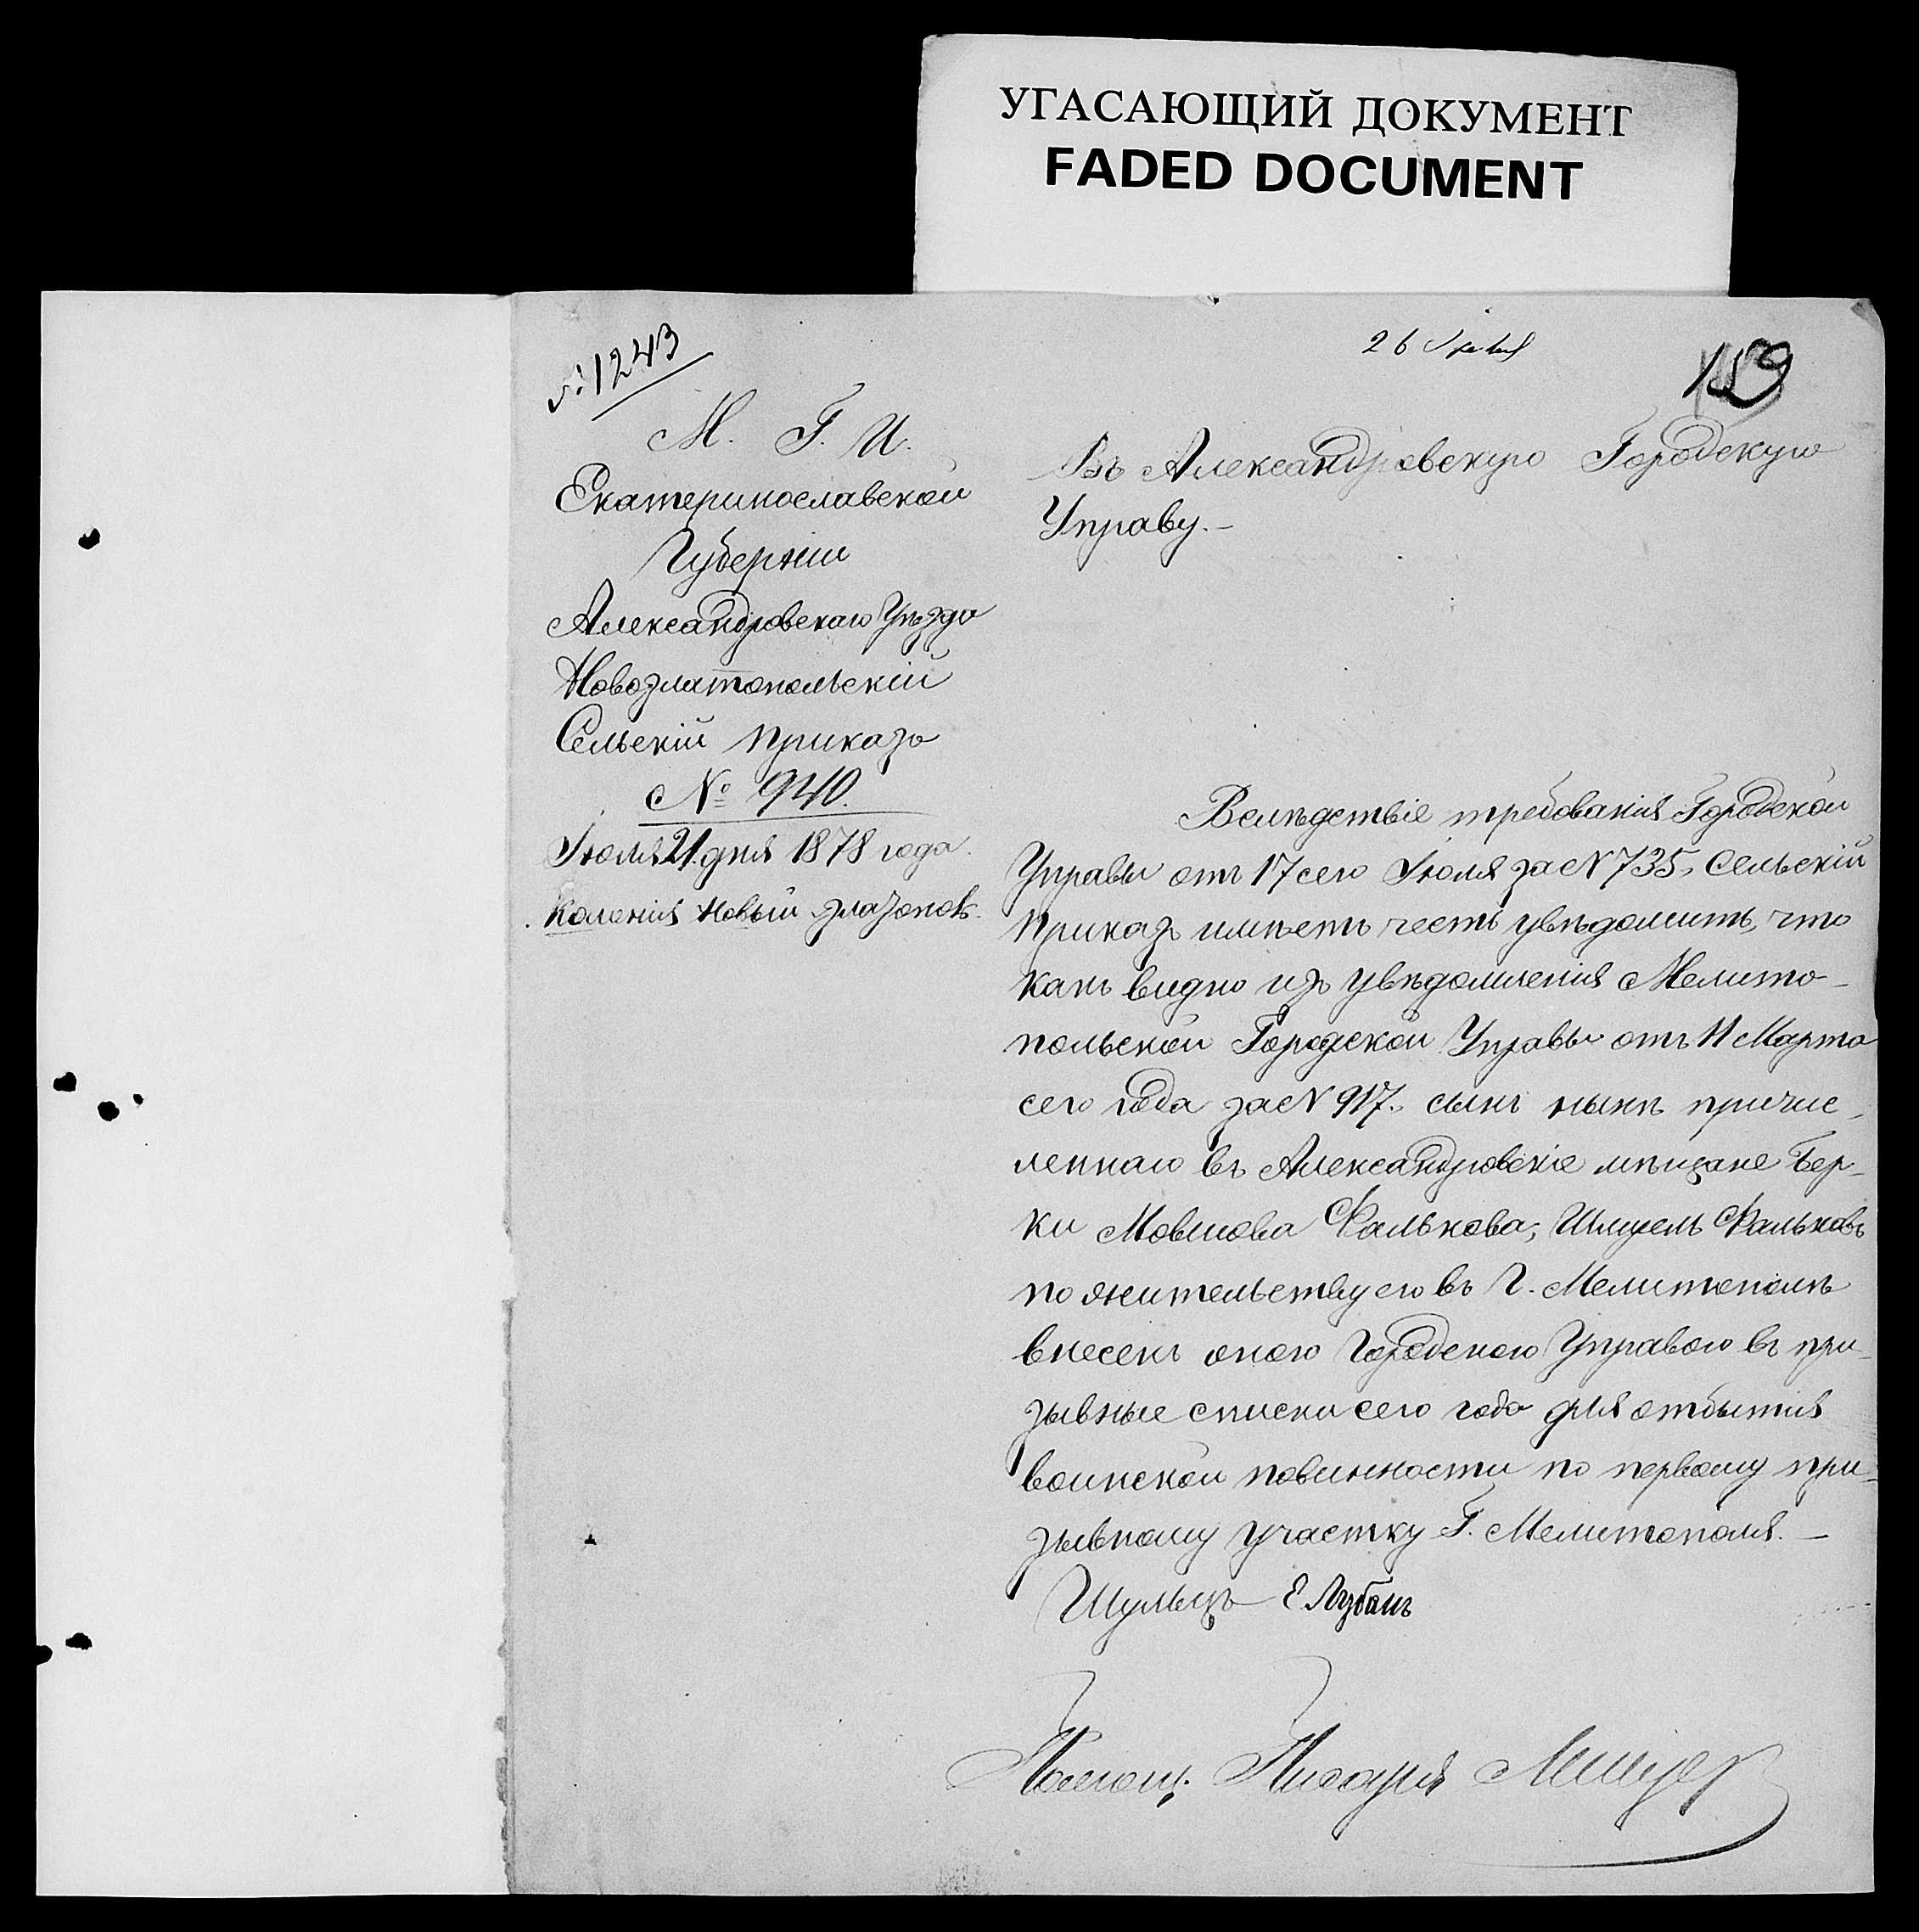 УГАСАЮЩИЙ ДОКУМЕНТ
FADED DOCUMENT
№ 1243
26 Іюля
159
М. Г. И.
Екатеринославской
Губерніи
Александровскаго Уѣзда
Новозлатопольскій
Сельскій приказъ
№ 940.
Іюля 21 дня 1878 года.
Колонія Новый
Въ Александровскую Городскую
Управу.—
Вслѣдствіе требованія Городской
Управы отъ 17 сего Іюля за № 735, Сельскій
приказъ имѣетъ честь увѣдомить, что
какъ видно изъ увѣдомленія Мелито-
польской Городской Управы отъ 11 Марта
сего года за № 917. сынъ нынѣ причис-
леннаго въ Александровскіе мѣщане Бер-
ки Мовшова Фалькова, Шмуель Фальковъ
по жительству его въ Г. Мелитополѣ
внесенъ оною Городскою Управою въ при-
зывные списки сего года для отбытія
воинской повинности по первому при-
зывному участку Г. Мелитополя.—
Шульцъ Е Лубанъ
Помощ. Писаря